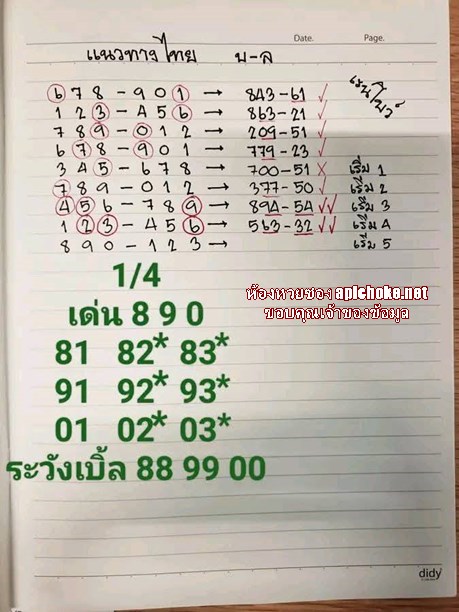 Date. Page.
แนวทางไทย บ-ล
678-901 → 843-61 ✓
123-456 → 863-21 ✓
789-012 → 209-51 ✓
678-901 → 779-23 ✓
345-678 → 700-51 × เริ่ม 1
789-012 → 377-50 ✓ เริ่ม 2
456-789 → 894-54 ✓✓ เริ่ม 3
123-456 → 563-32 ✓✓ เริ่ม 4
890-123 → เริ่ม 5
1/4
เด่น 8 9 0
81 82* 83*
91 92* 93*
01 02* 03*
ระวังเบิ้ล 88 99 00
ห้องหวยซอง apichoke.net
ขอบคุณเจ้าของข้อมูล
didy